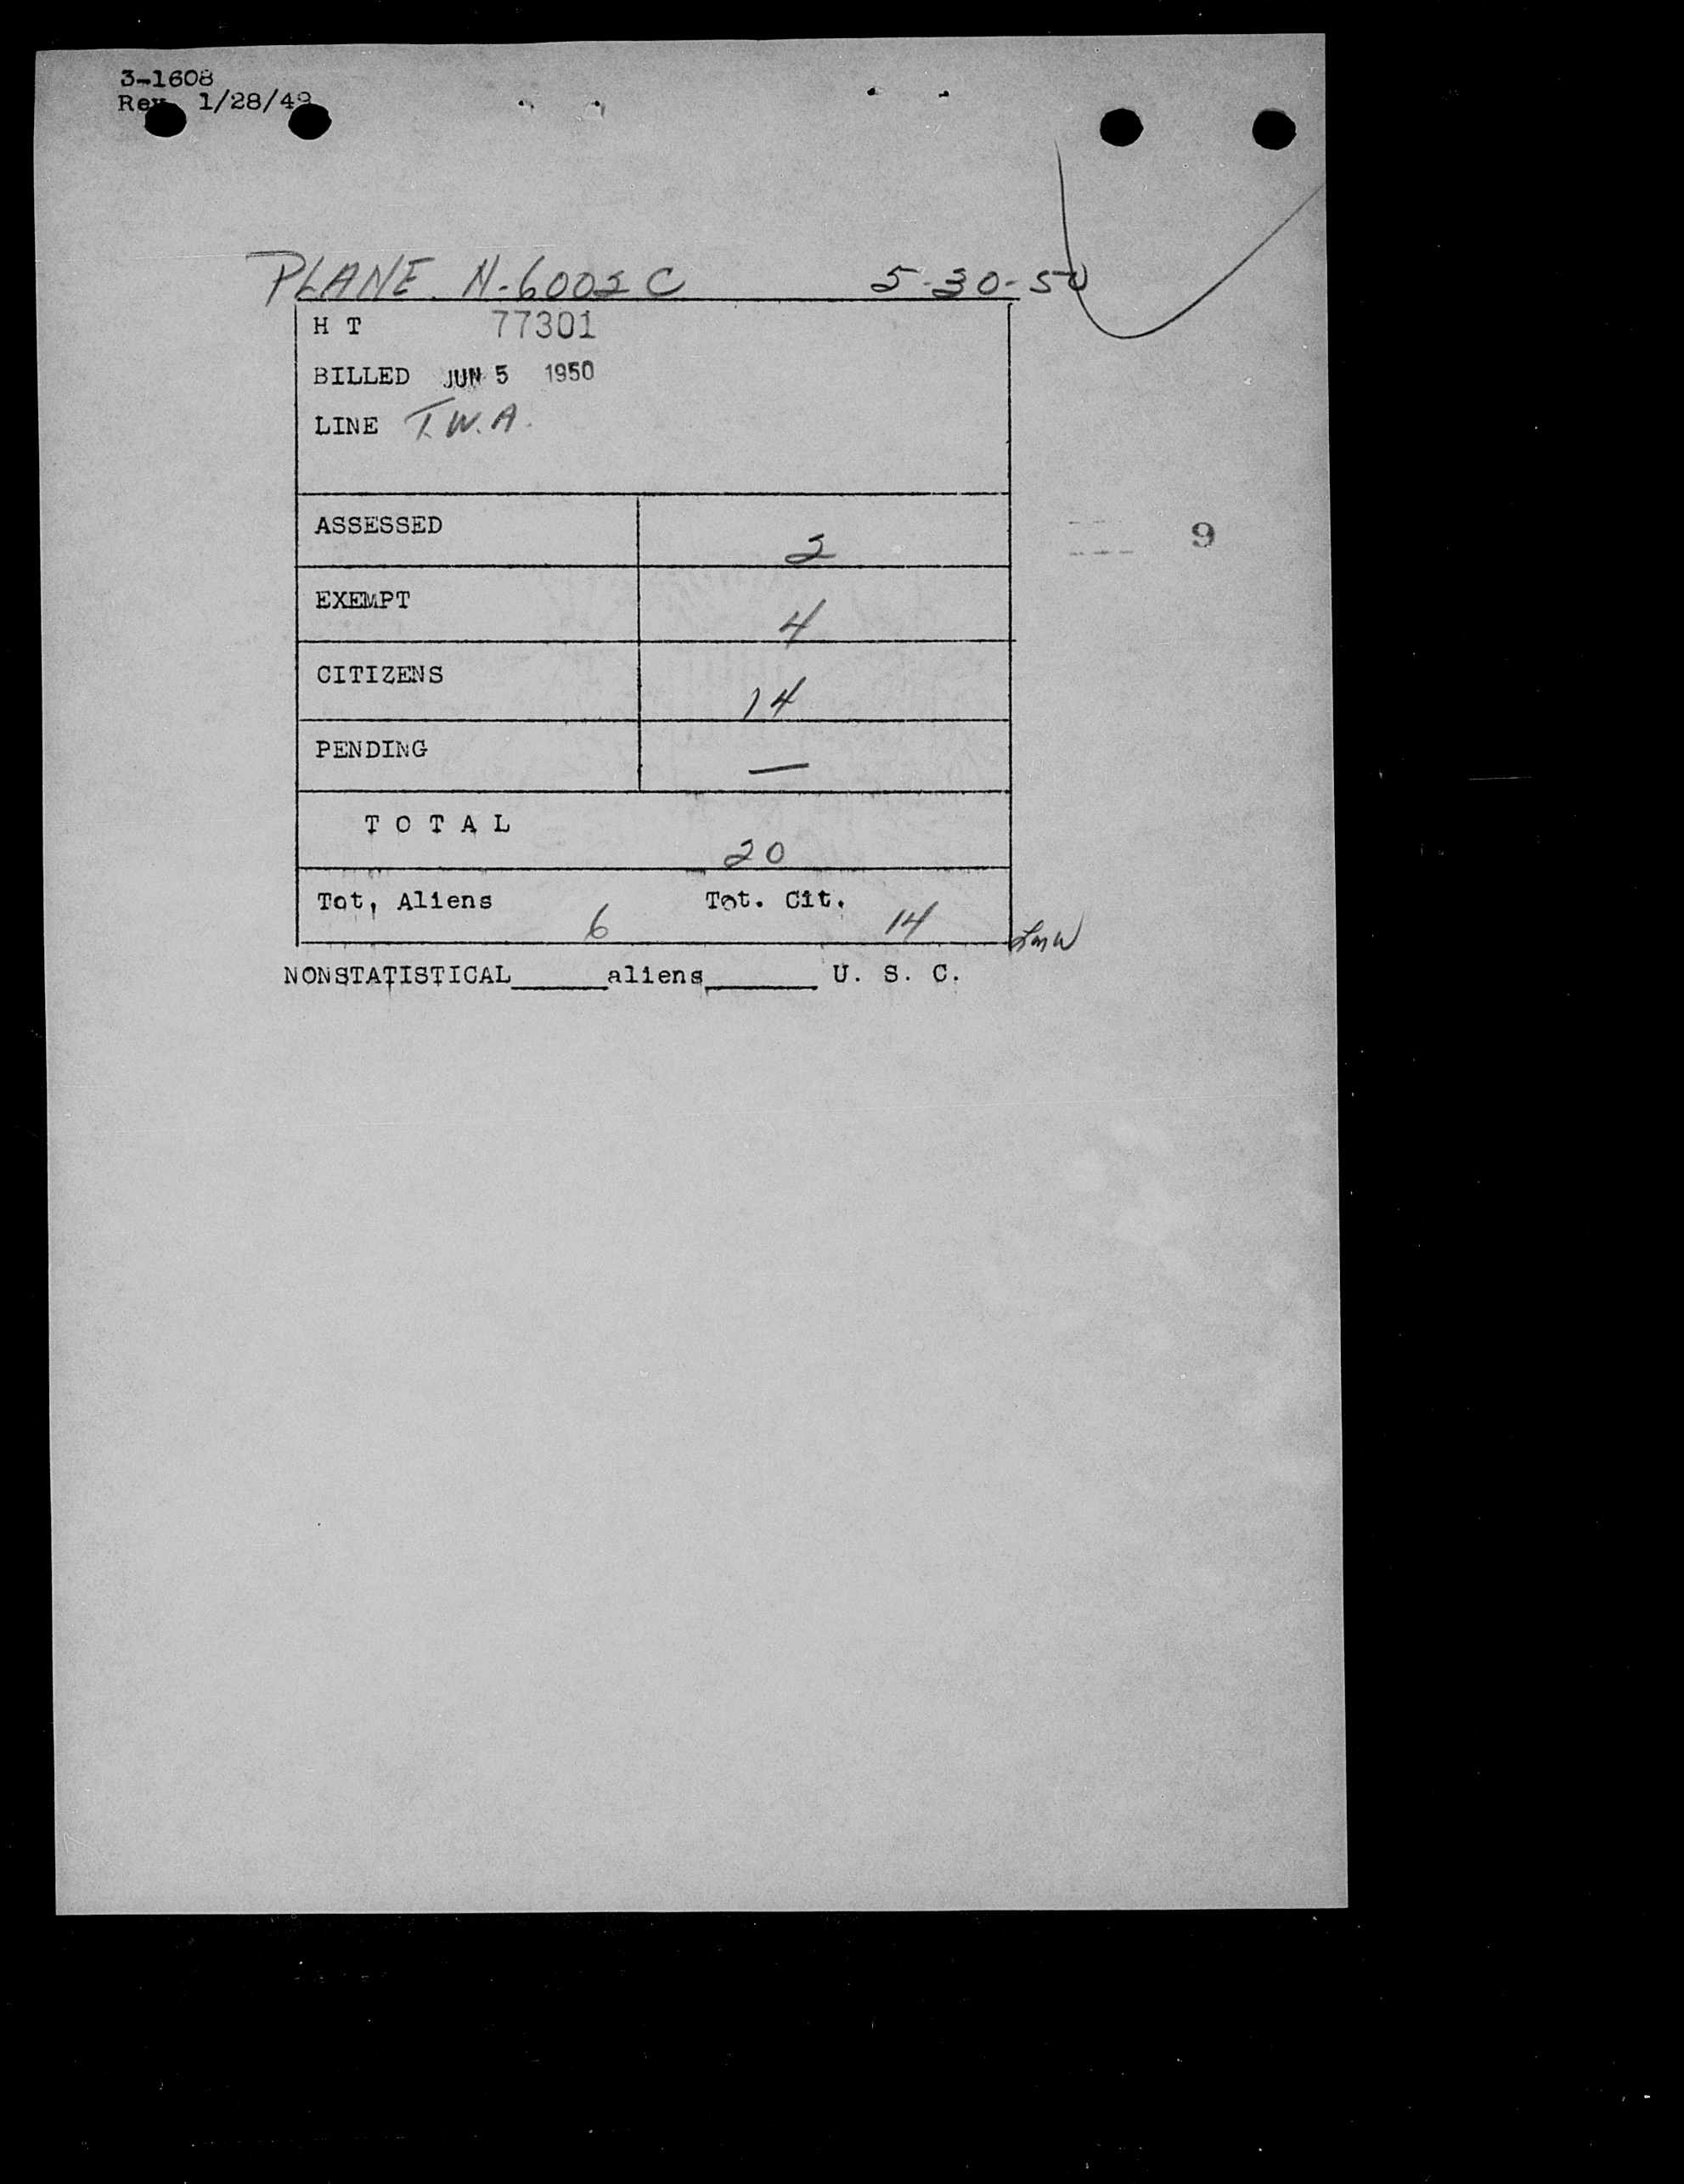 3-1608
Rev. 1/28/49
PLANE N-6002C 5-30-50
H T 77301
BILLED JUN 5 1950
LINE T.W.A.
ASSESSED 2
9
EXEMPT 4
CITIZENS 14
PENDING —
T O T A L 20
Tot, Aliens 6 Tot. Cit. 14
NONSTATISTICAL_____aliens______ U. S. C.